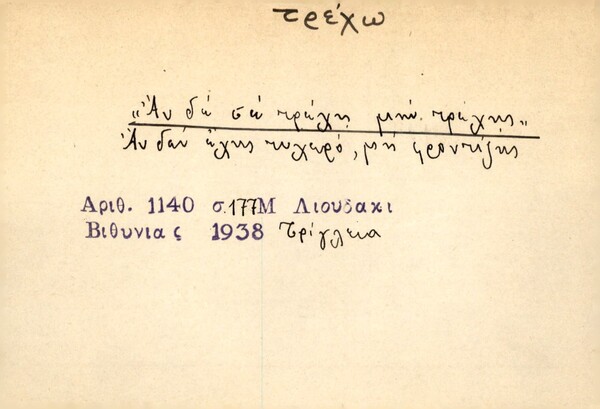 τρέχω
„Ἀν δέ σέ τρέχῃ μήν τρέχῃς"
Ἀν δέν ἔχῃς τυχερό, μή φροντίζῃς
Αριθ. 1140 σ.177 Μ Λιουδακι
Βιθυνιας 1938 Τρίγλεια